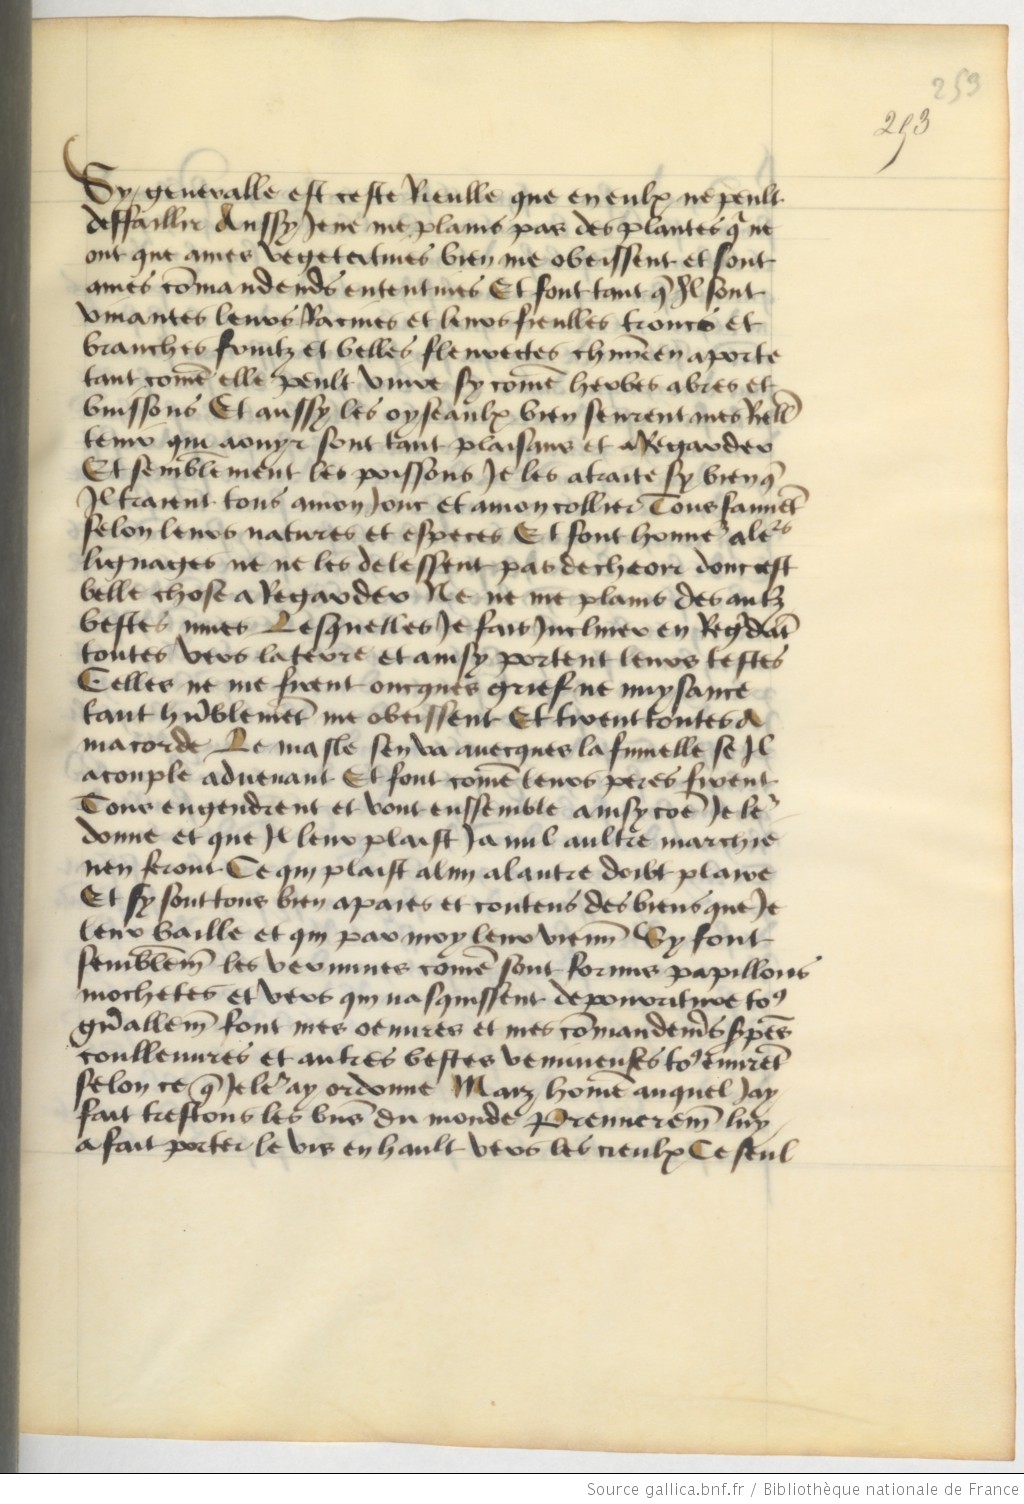 253
293
Sy generalle est ceste Rieulle que en eulx ne peult
deffaillir Aussy Je ne me plains pas des plantes q̃ ne
ont que ames vegetatives bien me obeissent et sont
a mes cōmandends ententives Et font tant q̃ Jl sont
vivantes leurs Racines et leurs fieulles troncs et
branches fruitz et belles fleurettes en aporte
tant comē elle peult vivre sy comē herbes abres et
buissons Et aussy les oyseaulx bien seurent mes
tenir qui a ouyr sont tant plaisans et a Regarder
Et semblement les poissons Je les a traite sy bien q̃
Jl traient tous a mon Jouc et a mon collier Tous
selon leurs natures et especes Et font honnr̃ a lers
lignages ne ne les delessent pas decheoir donc est
belle chose a Regarder Ne ne me plains des autz
bestes mues Lesquelles Je fais Jncliner en Reg̃dāt
toutes vers la terre et ainsy portent leurs testes
Celles ne me firent oncques grief ne nuysance
tant hūblemēt me obeissent Et tirent toutes a
ma corde Le masle sen va avecques la fumelle se Jl
acouple advenant Et font comē leurs peres firent
Tous engendrent et vont enssemble ainsy coē Je le
donne et que Jl leur plaist Ja nul aultre marchie
nen feront Ce qui plaist a lun a lautre doibt plaire
Et sy sont tous bien apaies et contens des biens que Je
leur baille et qui par moy leur vienn̄ Sy font
semblem̄ les vermines comē sont formis papillons
mochetes et vers qui nasquissent de pourriture to9
gn̄allem̄ font mes oeuvres et mes cōmandemēs
coulleuvres et autres bestes venimeuses to9
selon ce q̃ Je le ay ordonne Maiz homē auquel Jay
fait trestous les bn̄s du monde Premierem̄ luy
a fait porter le vis en hault vers les cieulx Ce seul
Source gallica.bnf.fr / Bibliothèque nationale de France